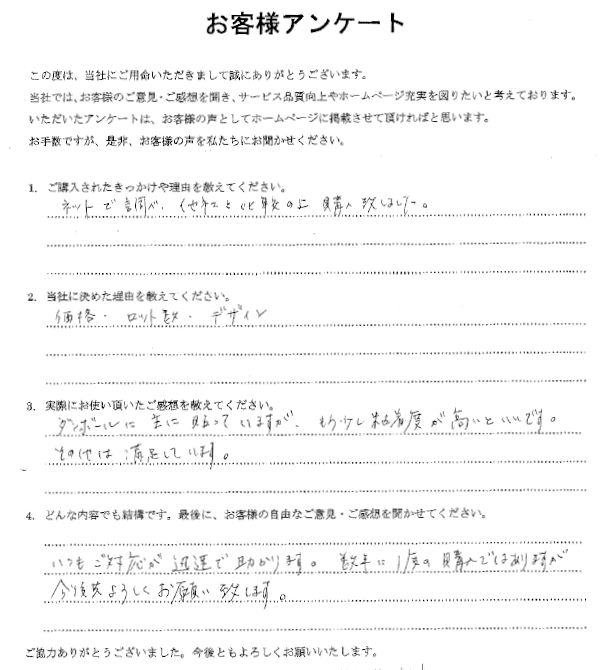 お客様アンケート
この度は、当社にご用命いただきまして誠にありがとうございます。
当社では、お客様のご意見・ご感想を聞き、サービス品質向上やホームページ充実を図りたいと考えております。
いただいたアンケートは、お客様の声としてホームページに掲載させて頂ければと思います。
お手数ですが、是非、お客様の声を私たちにお聞かせください。
1. ご購入されたきっかけや理由を教えてください。
ネットで調べ、他社と比較の上 購入致しました。
2. 当社に決めた理由を教えてください。
価格・ロット数・デザイン
3. 実際にお使い頂いたご感想を教えてください。
ダンボールに主に貼っていますが、もう少し粘着度が高いといいです。
その他は満足しています。
4. どんな内容でも結構です。最後に、お客様の自由なご意見・ご感想を聞かせてください。
いつもご対応が迅速で助かります。数年に1度の購入ではありますが
今後共よろしくお願い致します。
ご協力ありがとうございました。今後ともよろしくお願いいたします。